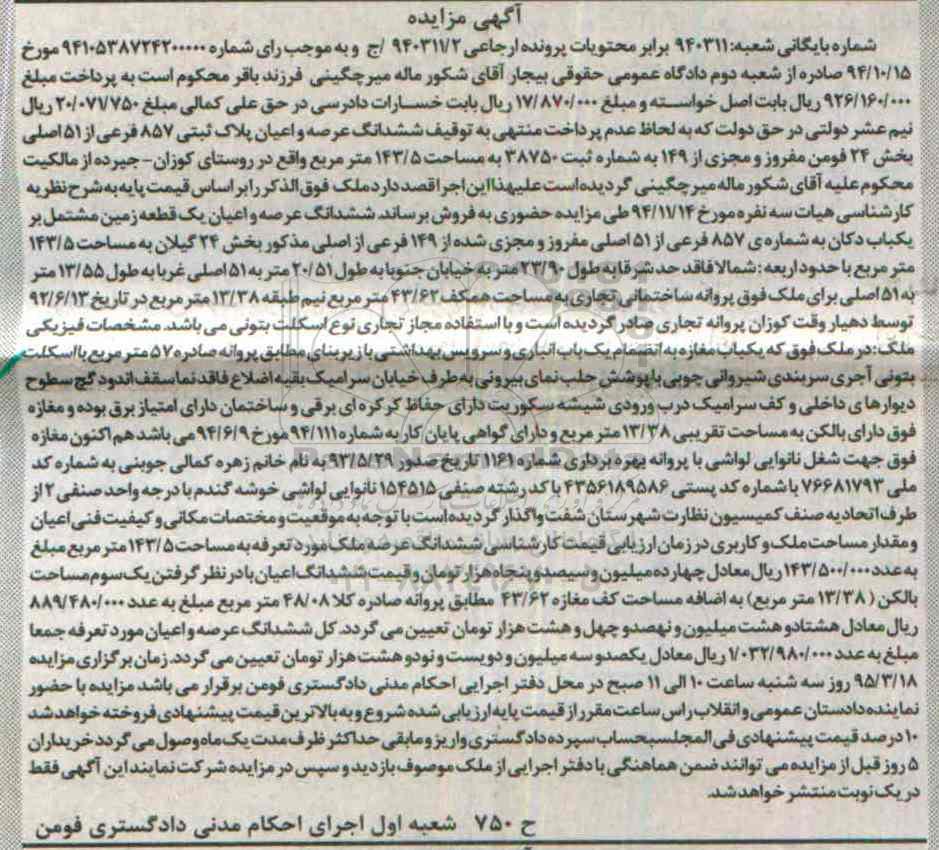 آگهی مزایده
شماره بایگانی شعبه: ۹۴۰۳۱۱ برابر محتویات پرونده ارجاعی ۹۴۰۳۱۱/۲ /ج و به موجب رای شماره ۹۴۱۰۵۳۸۷۲۴۲۰۰۰۰۰ مورخ
۹۴/۱۰/۱۵ صادره از شعبه دوم دادگاه عمومی حقوقی بیجار آقای شکور ماله میرچگینی فرزند باقر محکوم است به پرداخت مبلغ
۹۲۶/۱۶۰/۰۰۰ ریال بابت اصل خواسته و مبلغ ۱۷/۸۷۰/۰۰۰ ریال بابت خسارات دادرسی در حق علی کمالی مبلغ ۲۰/۰۷۱/۷۵۰ ریال
نیم عشر دولتی در حق دولت که به لحاظ عدم پرداخت منتهی به توقیف ششدانگ عرصه و اعیان پلاک ثبتی ۸۵۷ فرعی از ۵۱ اصلی
بخش ۲۴ فومن مفروز و مجزی از ۱۴۹ به شماره ثبت ۳۸۷۵۰ به مساحت ۱۴۳/۵ متر مربع واقع در روستای کوزان - جیرده از مالکیت
محکوم علیه آقای شکور ماله میرچگینی گردیده است علیهذا این اجرا قصد دارد ملک فوق الذکر را بر اساس قیمت پایه به شرح نظریه
کارشناسی هیات سه نفره مورخ ۹۴/۱۱/۱۴ طی مزایده حضوری به فروش برساند. ششدانگ عرصه و اعیان یک قطعه زمین مشتمل بر
یکباب دکان به شماره ی ۸۵۷ فرعی از ۵۱ اصلی مفروز و مجزی شده از ۱۴۹ فرعی از اصلی مذکور بخش ۲۴ گیلان به مساحت ۱۴۳/۵
متر مربع با حدود اربعه: شمالا فاقد حد شرقا به طول ۲۳/۹۰ متر به خیابان جنوبا به طول ۲۰/۵۱ متر به ۵۱ اصلی غربا به طول ۱۳/۵۵ متر
به ۵۱ اصلی برای ملک فوق پروانه ساختمانی تجاری به مساحت همکف ۴۳/۶۲ متر مربع نیم طبقه ۱۳/۳۸ متر مربع در تاریخ ۹۲/۶/۱۳
توسط دهیار وقت کوزان پروانه تجاری صادر گردیده است و با استفاده مجاز تجاری نوع اسکلت بتونی می باشد. مشخصات فیزیکی
ملک: در ملک فوق که یکباب مغازه به انضمام یک باب انباری و سرویس بهداشتی با زیربنای مطابق پروانه صادره ۵۷ متر مربع با اسکلت
بتونی آجری سربندی شیروانی چوبی با پوشش حلب نمای بیرونی به طرف خیابان سرامیک بقیه اضلاع فاقد نما سقف اندود گچ سطوح
دیوارها ی داخلی و کف سرامیک درب ورودی شیشه سکوریت دارای حفاظ کرکره ای برقی و ساختمان دارای امتیاز برق بوده و مغازه
فوق دارای بالکن به مساحت تقریبی ۱۳/۳۸ متر مربع و دارای گواهی پایان کار به شماره ۹۴/۱۱۱ مورخ ۹۴/۶/۹ می باشد هم اکنون مغازه
فوق جهت شغل نانوایی لواشی با پروانه بهره برداری شماره ۱۱۶۱ تاریخ صدور ۹۳/۵/۲۹ به نام خانم زهره کمالی جوبنی به شماره کد
ملی ۷۶۶۸۱۷۹۳ با شماره کد پستی ۴۳۵۶۱۸۹۵۸۶ با کد رشته صنفی ۱۵۴۵۱۵ نانوایی لواشی خوشه گندم با درجه واحد صنفی ۲ از
طرف اتحادیه صنف کمیسیون نظارت شهرستان شفت واگذار گردیده است با توجه به موقعیت و مختصات مکانی و کیفیت فنی اعیان
و مقدار مساحت ملک و کاربری در زمان ارزیابی قیمت کارشناسی ششدانگ عرصه ملک مورد تعرفه به مساحت ۱۴۳/۵ متر مربع مبلغ
به عدد ۱۴۳/۵۰۰/۰۰۰ ریال معادل چهارده میلیون و سیصد و پنجاه هزار تومان و قیمت ششدانگ اعیان با در نظر گرفتن یک سوم مساحت
بالکن (۱۳/۳۸ متر مربع) به اضافه مساحت کف مغازه ۴۳/۶۲ مطابق پروانه صادره کلا ۴۸/۰۸ متر مربع مبلغ به عدد ۸۸۹/۴۸۰/۰۰۰
ریال معادل هشتاد و هشت میلیون و نهصد و چهل و هشت هزار تومان تعیین می گردد. کل ششدانگ عرصه و اعیان مورد تعرفه جمعا
مبلغ به عدد ۱/۰۳۲/۹۸۰/۰۰۰ ریال معادل یکصد و سه میلیون و دویست و نود و هشت هزار تومان تعیین می گردد. زمان برگزاری مزایده
۹۵/۳/۱۸ روز سه شنبه ساعت ۱۰ الی ۱۱ صبح در محل دفتر اجرایی احکام مدنی دادگستری فومن برقرار می باشد مزایده با حضور
نماینده دادستان عمومی و انقلاب راس ساعت مقرر از قیمت پایه ارزیابی شده شروع و به بالاترین قیمت پیشنهادی فروخته خواهد شد
۱۰ درصد قیمت پیشنهادی فی المجلس بحساب سپرده دادگستری واریز و مابقی حداکثر ظرف مدت یک ماه وصول می گردد خریداران
۵ روز قبل از مزایده می توانند ضمن هماهنگی با دفتر اجرایی از ملک موصوف بازدید و سپس در مزایده شرکت نمایند این آگهی فقط
در یک نوبت منتشر خواهد شد.
ح ۷۵۰ شعبه اول اجرای احکام مدنی دادگستری فومن